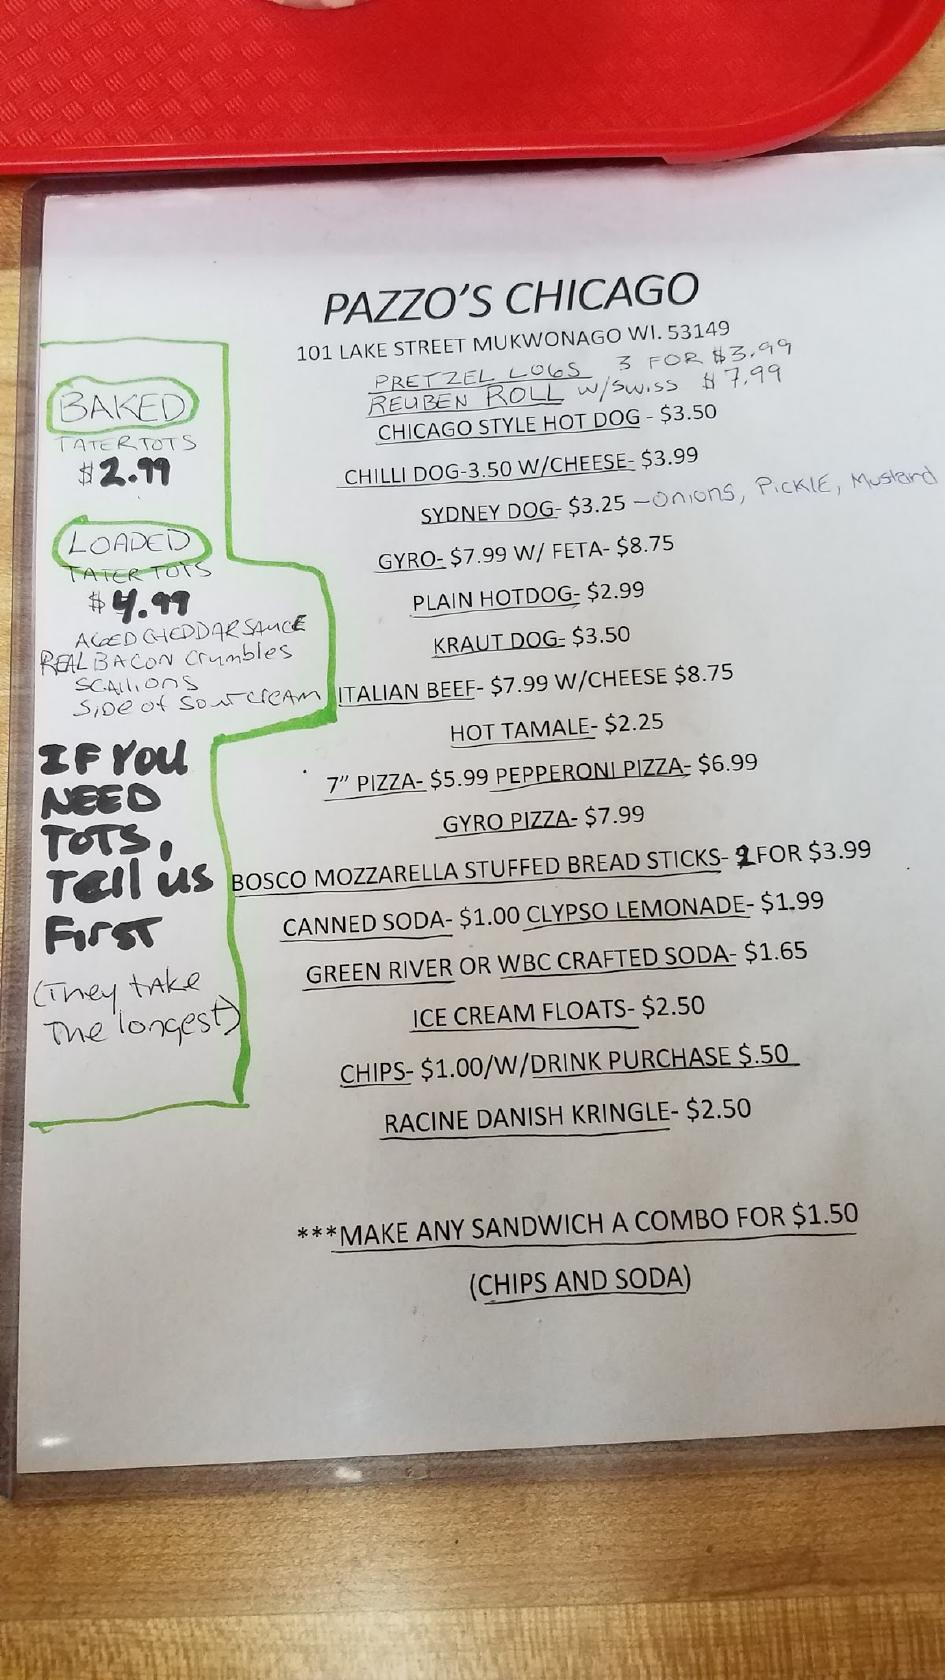 PAZZO'S CHICAGO
101 LAKE STREET MUKWONAGO WI. 53149
PRETZEL LOGS 3 FOR $3.99
REUBEN ROLL W/SWISS $7.99
CHICAGO STYLE HOT DOG - $3.50
CHILLI DOG-3.50 W/CHEESE- $3.99
SYDNEY DOG- $3.25 - ONIONS, PICKLE, Mustard
GYRO- $7.99 W/ FETA- $8.75
PLAIN HOTDOG- $2.99
KRAUT DOG- $3.50
ITALIAN BEEF- $7.99 W/CHEESE $8.75
HOT TAMALE- $2.25
7" PIZZA- $5.99 PEPPERONI PIZZA- $6.99
GYRO PIZZA- $7.99
BOSCO MOZZARELLA STUFFED BREAD STICKS- 2 FOR $3.99
CANNED SODA- $1.00 CLYPSO LEMONADE- $1.99
GREEN RIVER OR WBC CRAFTED SODA- $1.65
ICE CREAM FLOATS- $2.50
CHIPS- $1.00/W/DRINK PURCHASE $.50
RACINE DANISH KRINGLE- $2.50
***MAKE ANY SANDWICH A COMBO FOR $1.50
(CHIPS AND SODA)
BAKED
TATER TOTS
$2.99
LOADED
TATER TOTS
$4.99
AGED CHEDDAR SAUCE
REAL BACON Crumbles
SCAllIONS
SIDE of SOUR CREAM
IF YOU
NEED
TOTS,
Tell us
First
(They take
The longest)